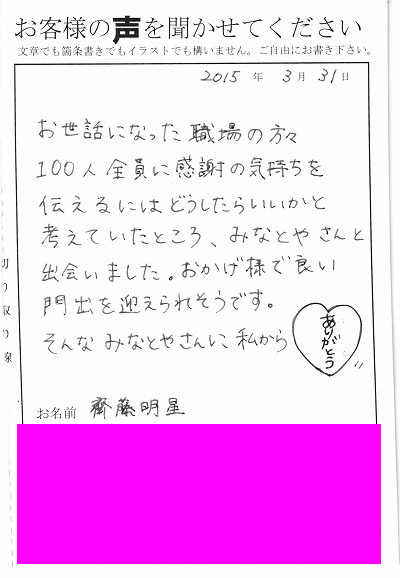 お客様の声を聞かせてください
文章でも箇条書きでもイラストでも構いません。ご自由にお書き下さい。
2015 年 3 月 31 日
お世話になった職場の方々
100人全員に感謝の気持ちを
伝えるにはどうしたらいいかと
考えていたところ、みなとやさんと
出会いました。おかげ様で良い
門出を迎えられそうです。
そんなみなとやさんに私から
ありがとう
お名前 齊藤明星
切り取り線